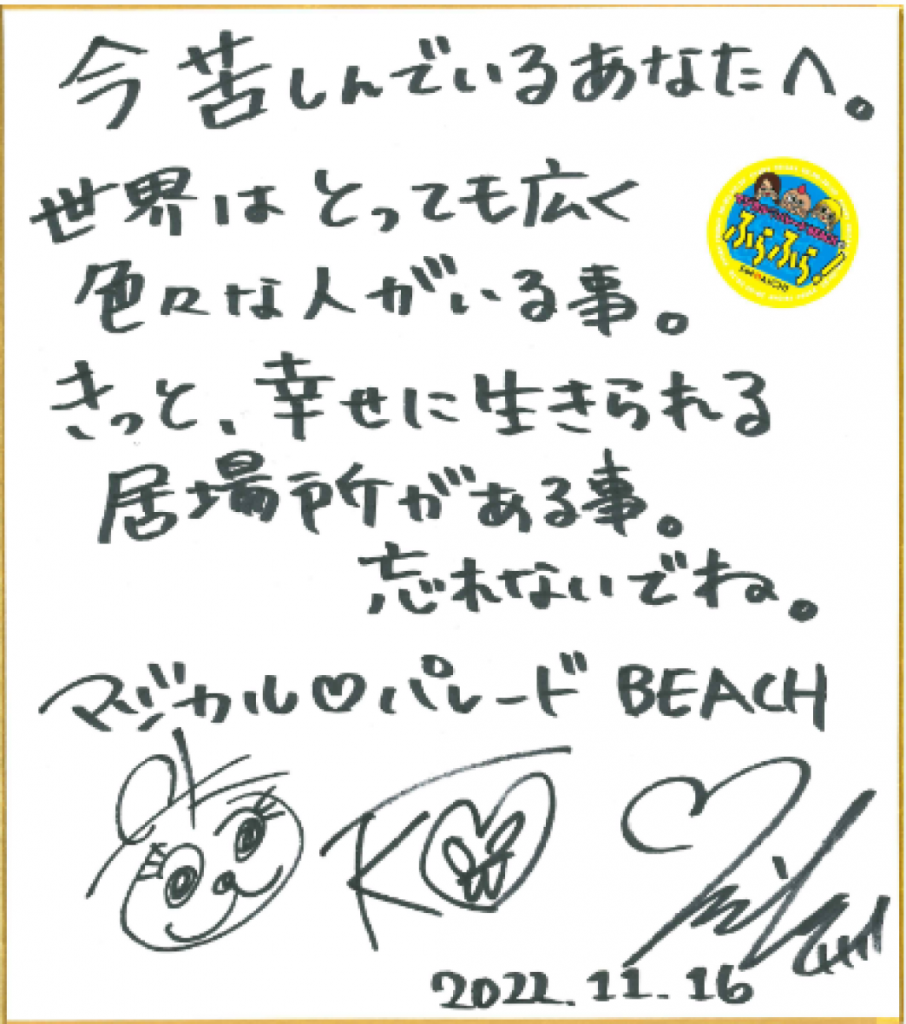 今苦しんでいるあなたへ。
世界はとっても広く
色々な人がいる事。
ふらふら!
きっと、幸せに生きられる
居場所がある事。
忘れないでね。
マジカル♡パレード BEACH
2022.11.16